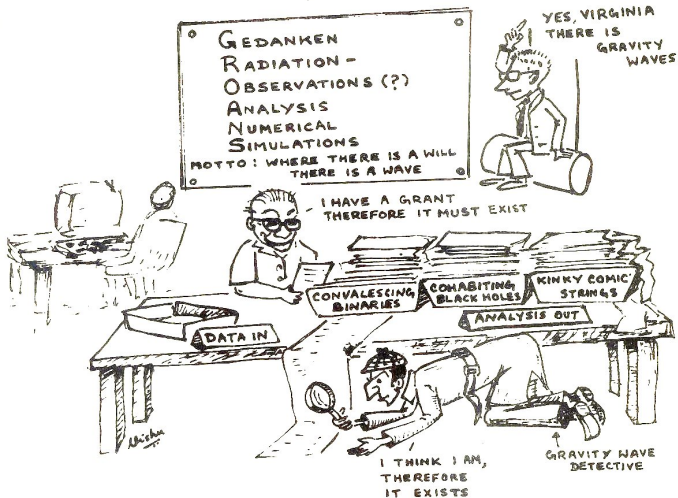 GEDANKEN
RADIATION -
OBSERVATIONS (?)
ANALYSIS
NUMERICAL
SIMULATIONS
MOTTO: WHERE THERE IS A WILL
THERE IS A WAVE
YES, VIRGINIA
THERE IS
GRAVITY
WAVES
I HAVE A GRANT
THEREFORE IT MUST EXIST
CONVALESCING
BINARIES
COHABITING
BLACK HOLES
KINKY COMIC'
STRINGS
DATA IN
ANALYSIS OUT
I THINK I AM,
THEREFORE
IT EXISTS
GRAVITY WAVE
DETECTIVE
Vishu